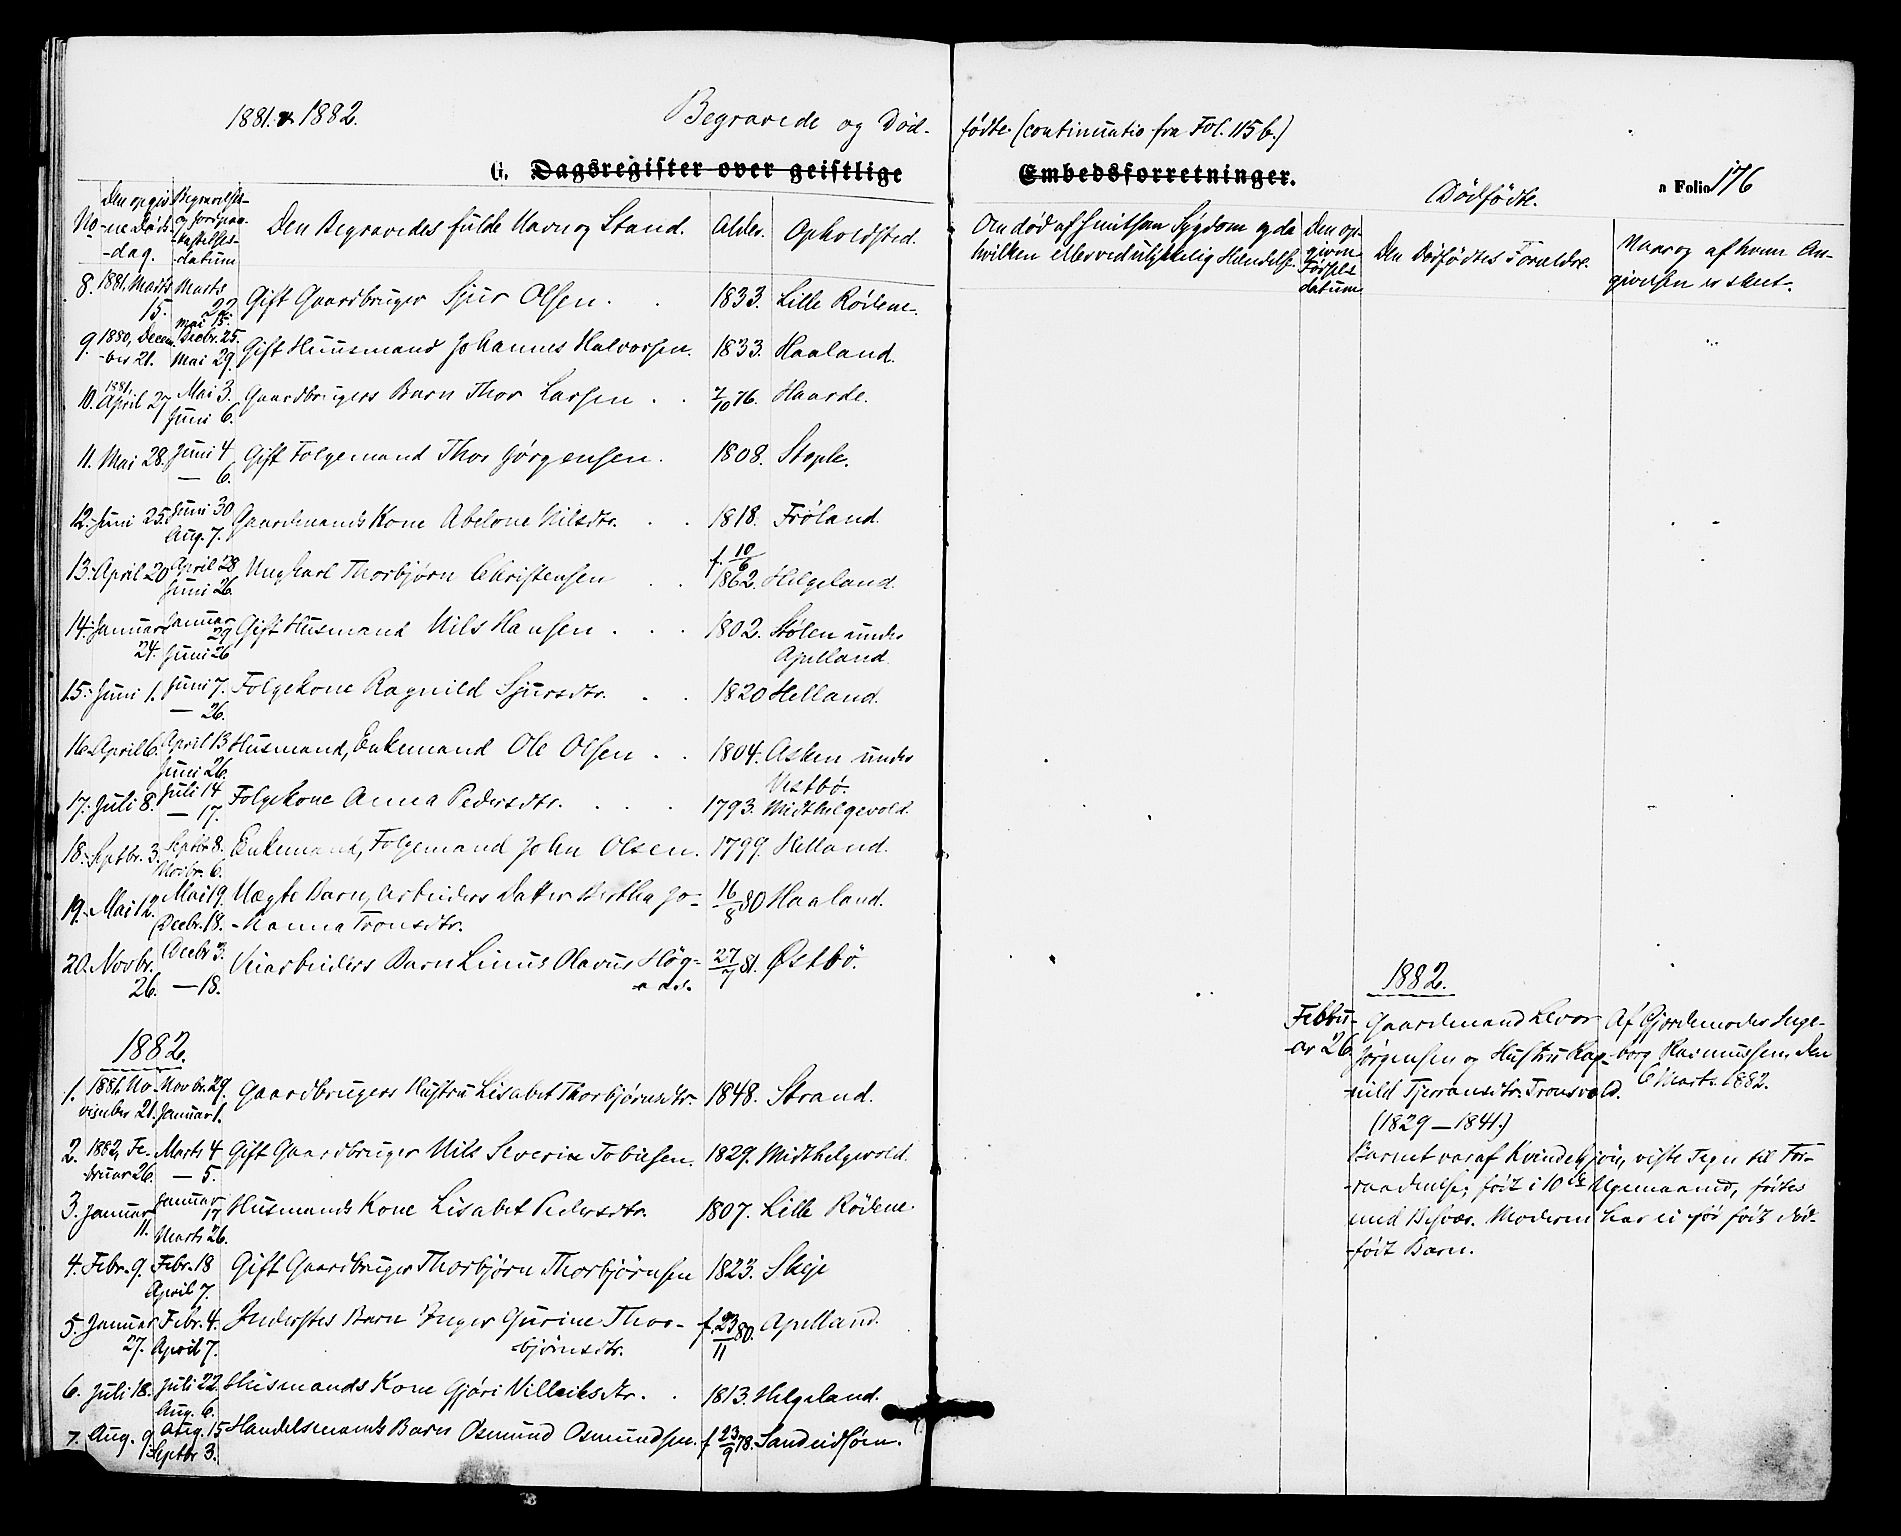 1881. & 1882.
Begravede og Død-
fødte. (continuatio fra Fol. 115 b.)
G. Dagsregister over geistlige
Embedsforretninger.
a Folio 176
Dødfødte.
No
Den opgiv-
-ne Døds-
-dag.
Begravelses-
og Jordpaa-
-kastelses-
-datum
Den Begravedes fulde Navn og Stand.
Alder.
Opholdsted.
Om død af smitsom Sygdom og da
hvilken eller ved ulykkelig Hændelse.
Den op-
givne
Fødsels-
datum
Den Dødfødtes Forældre.
Naar og af hvem An-
givelsen er skeet.
8. 1881. Marts Marts Gift Gaardbruger Sjur Olsen. 1833. Lille Rødene.
15. 22. Mai 15.
9. 1880, Decem- Decbr. 25. Gift Huusmand Johannes Halvorsen. 1833. Haaland.
-ber 21. Mai 29.
10. 1881, April 27 Mai 3. Gaardbrugers Barn Thor Larsen 7/10 76. Haarde.
Juni 6.
11. Mai 28. Juni 4 Gift Folgemand Thor Jørgensen. 1808. Stople.
— 6.
12. Juni 25. Juni 30 Gaardmands Kone Abelone Nilsdtr. 1818. Frøland.
Aug. 7.
13. April 20 April 28 Ungkarl Thorbjørn Christensen f. 10/6 1862. Helgeland.
Juni 26.
14. Januar Januar Gift Husmand Nils Hansen 1802. Stølen under
24. 29 Juni 26 Apelland
15. Juni 1. Juni 7. Folgekone Ragnild Sjursdtr. 1820 Helland.
— 26.
16. April 6. April 13 Husmand, Enkemand Ole Olsen 1804. Asken under
Juni 26. Vestbø.
17. Juli 8. Juli 14 Folgekone Anna Pedersdtr. 1793. Midthelgevold.
— 17.
18. Septbr. 3. Septbr 8. Enkemand, Folgemand John Olsen. 1799. Helland.
Novbr. 6.
19. Mai 12. Mai 19. Uægte Barn, Arbeiders Datter Bertha Jo- 16/8 80 Haaland.
Decbr. 18. -hanna Tronsdtr.
20. Novbr. Decbr 3. Veiarbeiders Barn Linus Olavus Høg- 27/7 81. Østbø.
26. — 18.
1882.
1. 1881, No- Novbr. 29. Gaardbrugers Hustru Lisabet Thorbjørnsdtr. 1848. Strand.
vember 21. Januar 1.
2. 1882, Fe- Marts 4 Gift Gaardbruger Nils Severin Tobiesen. 1829. Midthelgevold.
bruar 26. — 5.
3. Januar Januar Husmands Kone Lisabet Pedersdtr. 1807. Lille Rødene.
11. 17 Marts 26.
4. Febr. 9. Febr. 18 Gift Gaardbruger Thorbjørn Thorbjørnsen 1823. Skeje
April 7.
5. Januar Febr. 4. Inderstes Barn Inger Gurine Thor- f. 23/11 80. Apelland.
27. April 7. bjørnsdtr.
6. Juli 18. Juli 22. Husmands Kone Gjøri Villeiksdtr. 1813. Helgeland.
Aug. 6.
7. Aug. 9. Aug. 15 Handelsmands Barn Osmund Osmundsen. f. 23/9 78. Sandeidsøen.
Septbr 3.
1882.
Febru- Gaardmand Levor Af Gjordemoder Inge-
-ar 26. Jørgensen og Hustru Rag- -borg Rasmussen, den
-nild Tjerransdtr. Tronsvold. 6 Marts 1882.
(1829 — 1841.)
Barnet var af Kvindekjøn, viste Tegn til For-
-raadnelse; født i 10de Ugemaaned, fødtes
med Besvær. Moderen har ei før født død-
-født Barn.